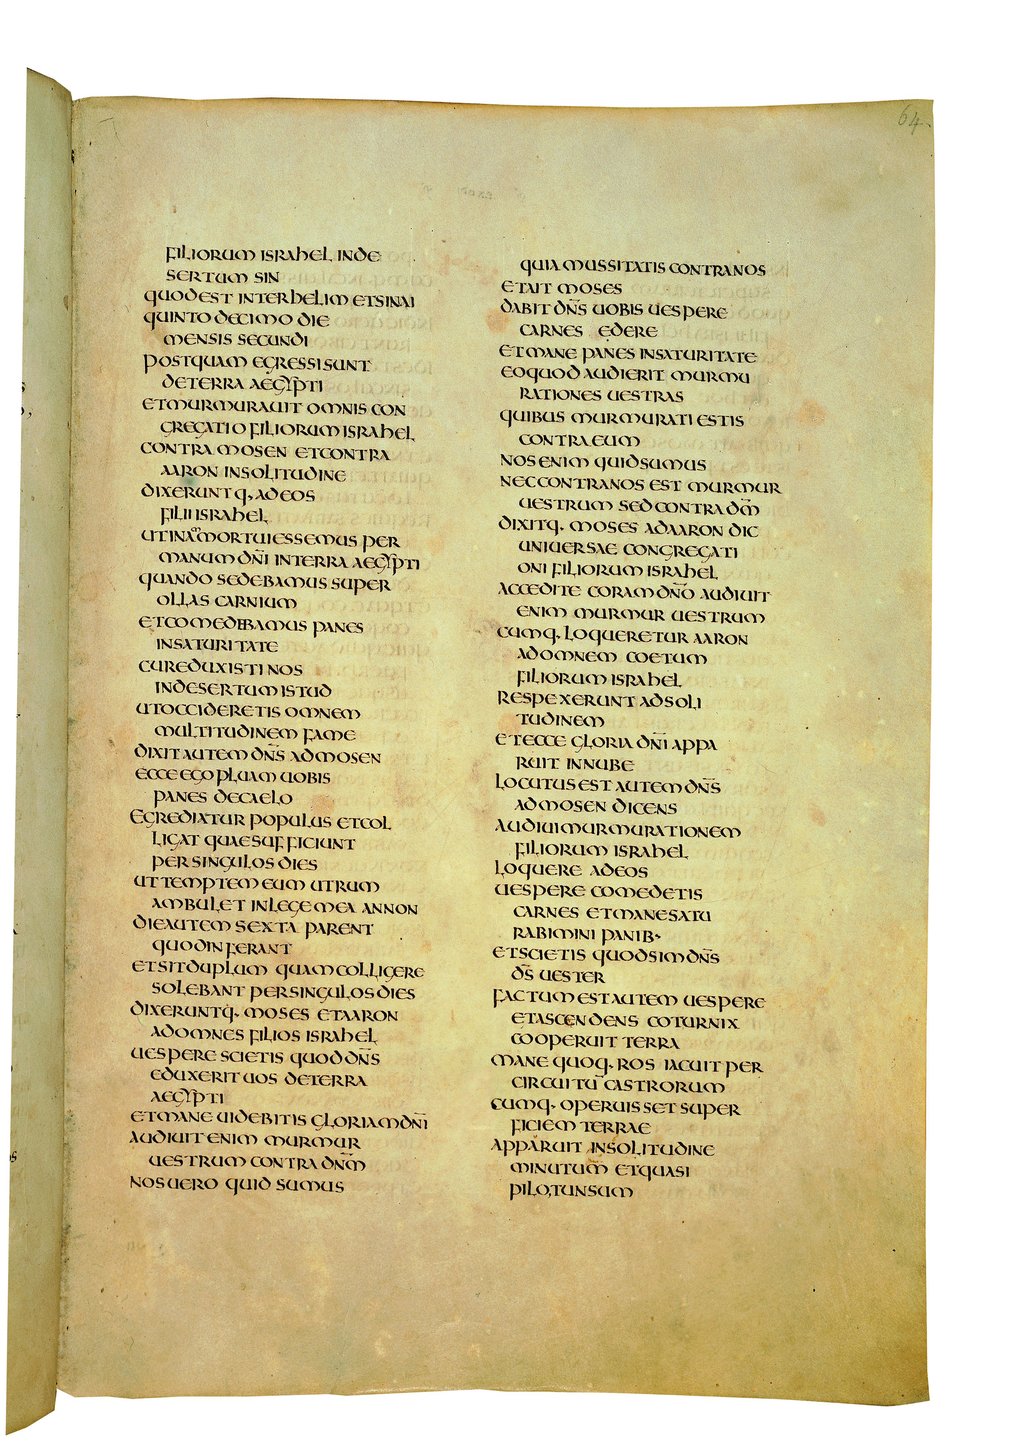 64
FILIORUM ISRAHEL INDE
SERTUM SIN
QUOD EST INTER HELIM ET SINAI
QUINTO DECIMO DIE
MENSIS SECUNDI
POSTQUAM EGRESSI SUNT
DE TERRA AEGYPTI
ET MURMURAUIT OMNIS CON
GREGATIO FILIORUM ISRAHEL
CONTRA MOSEN ET CONTRA
AARON IN SOLITUDINE
DIXERUNTQ· AD EOS
FILII ISRAHEL
UTINAM MORTUI ESSEMUS PER
MANUM DN̄I IN TERRA AEGYPTI
QUANDO SEDEBAMUS SUPER
OLLAS CARNIUM
ET COMEDEBAMUS PANES
IN SATURITATE
CUR EDUXISTI NOS
IN DESERTUM ISTUD
UT OCCIDERETIS OMNEM
MULTITUDINEM FAME
DIXIT AUTEM DN̄S AD MOSEN
ECCE EGO PLUAM UOBIS
PANES DE CAELO
EGREDIATUR POPULUS ET COL
LIGAT QUAE SUFFICIUNT
PER SINGULOS DIES
UT TEMPTEM EUM UTRUM
AMBULET IN LEGE MEA ANNON
DIE AUTEM SEXTA PARENT
QUOD INFERANT
ET SIT DUPLUM QUAM COLLIGERE
SOLEBANT PER SINGULOS DIES
DIXERUNTQ· MOSES ET AARON
AD OMNES FILIOS ISRAHEL
UESPERE SCIETIS QUOD DN̄S
EDUXERIT UOS DE TERRA
AEGYPTI
ET MANE UIDEBITIS GLORIAM DN̄I
AUDIUIT ENIM MURMUR
UESTRUM CONTRA DN̄M
NOS UERO QUID SUMUS
QUIA MUSSITATIS CONTRA NOS
ET AIT MOSES
DABIT DN̄S UOBIS UESPERE
CARNES EDERE
ET MANE PANES IN SATURITATE
EO QUOD AUDIERIT MURMU
RATIONES UESTRAS
QUIBUS MURMURATI ESTIS
CONTRA EUM
NOS ENIM QUID SUMUS
NEC CONTRA NOS EST MURMUR
UESTRUM SED CONTRA DN̄M
DIXITQ· MOSES AD AARON DIC
UNIUERSAE CONGREGATI
ONI FILIORUM ISRAHEL
ACCEDITE CORAM DN̄O AUDIUIT
ENIM MURMUR UESTRUM
CUMQ· LOQUERETUR AARON
AD OMNEM COETUM
FILIORUM ISRAHEL
RESPEXERUNT AD SOLI
TUDINEM
ET ECCE GLORIA DN̄I APPA
RUIT IN NUBE
LOCUTUS EST AUTEM DN̄S
AD MOSEN DICENS
AUDIUI MURMURATIONEM
FILIORUM ISRAHEL
LOQUERE AD EOS
UESPERE COMEDETIS
CARNES ET MANE SATU
RABIMINI PANIB·
ET SCIETIS QUOD SIM DN̄S
DS̄ UESTER
FACTUM EST AUTEM UESPERE
ET ASCENDENS COTURNIX
COOPERUIT TERRA
MANE QUOQ· ROS IACUIT PER
CIRCUITŪ CASTRORUM
CUMQ· OPERUISSET SUPER
FICIEM TERRAE
APPARUIT IN SOLITUDINE
MINUTUM ET QUASI
PILO TUNSUM